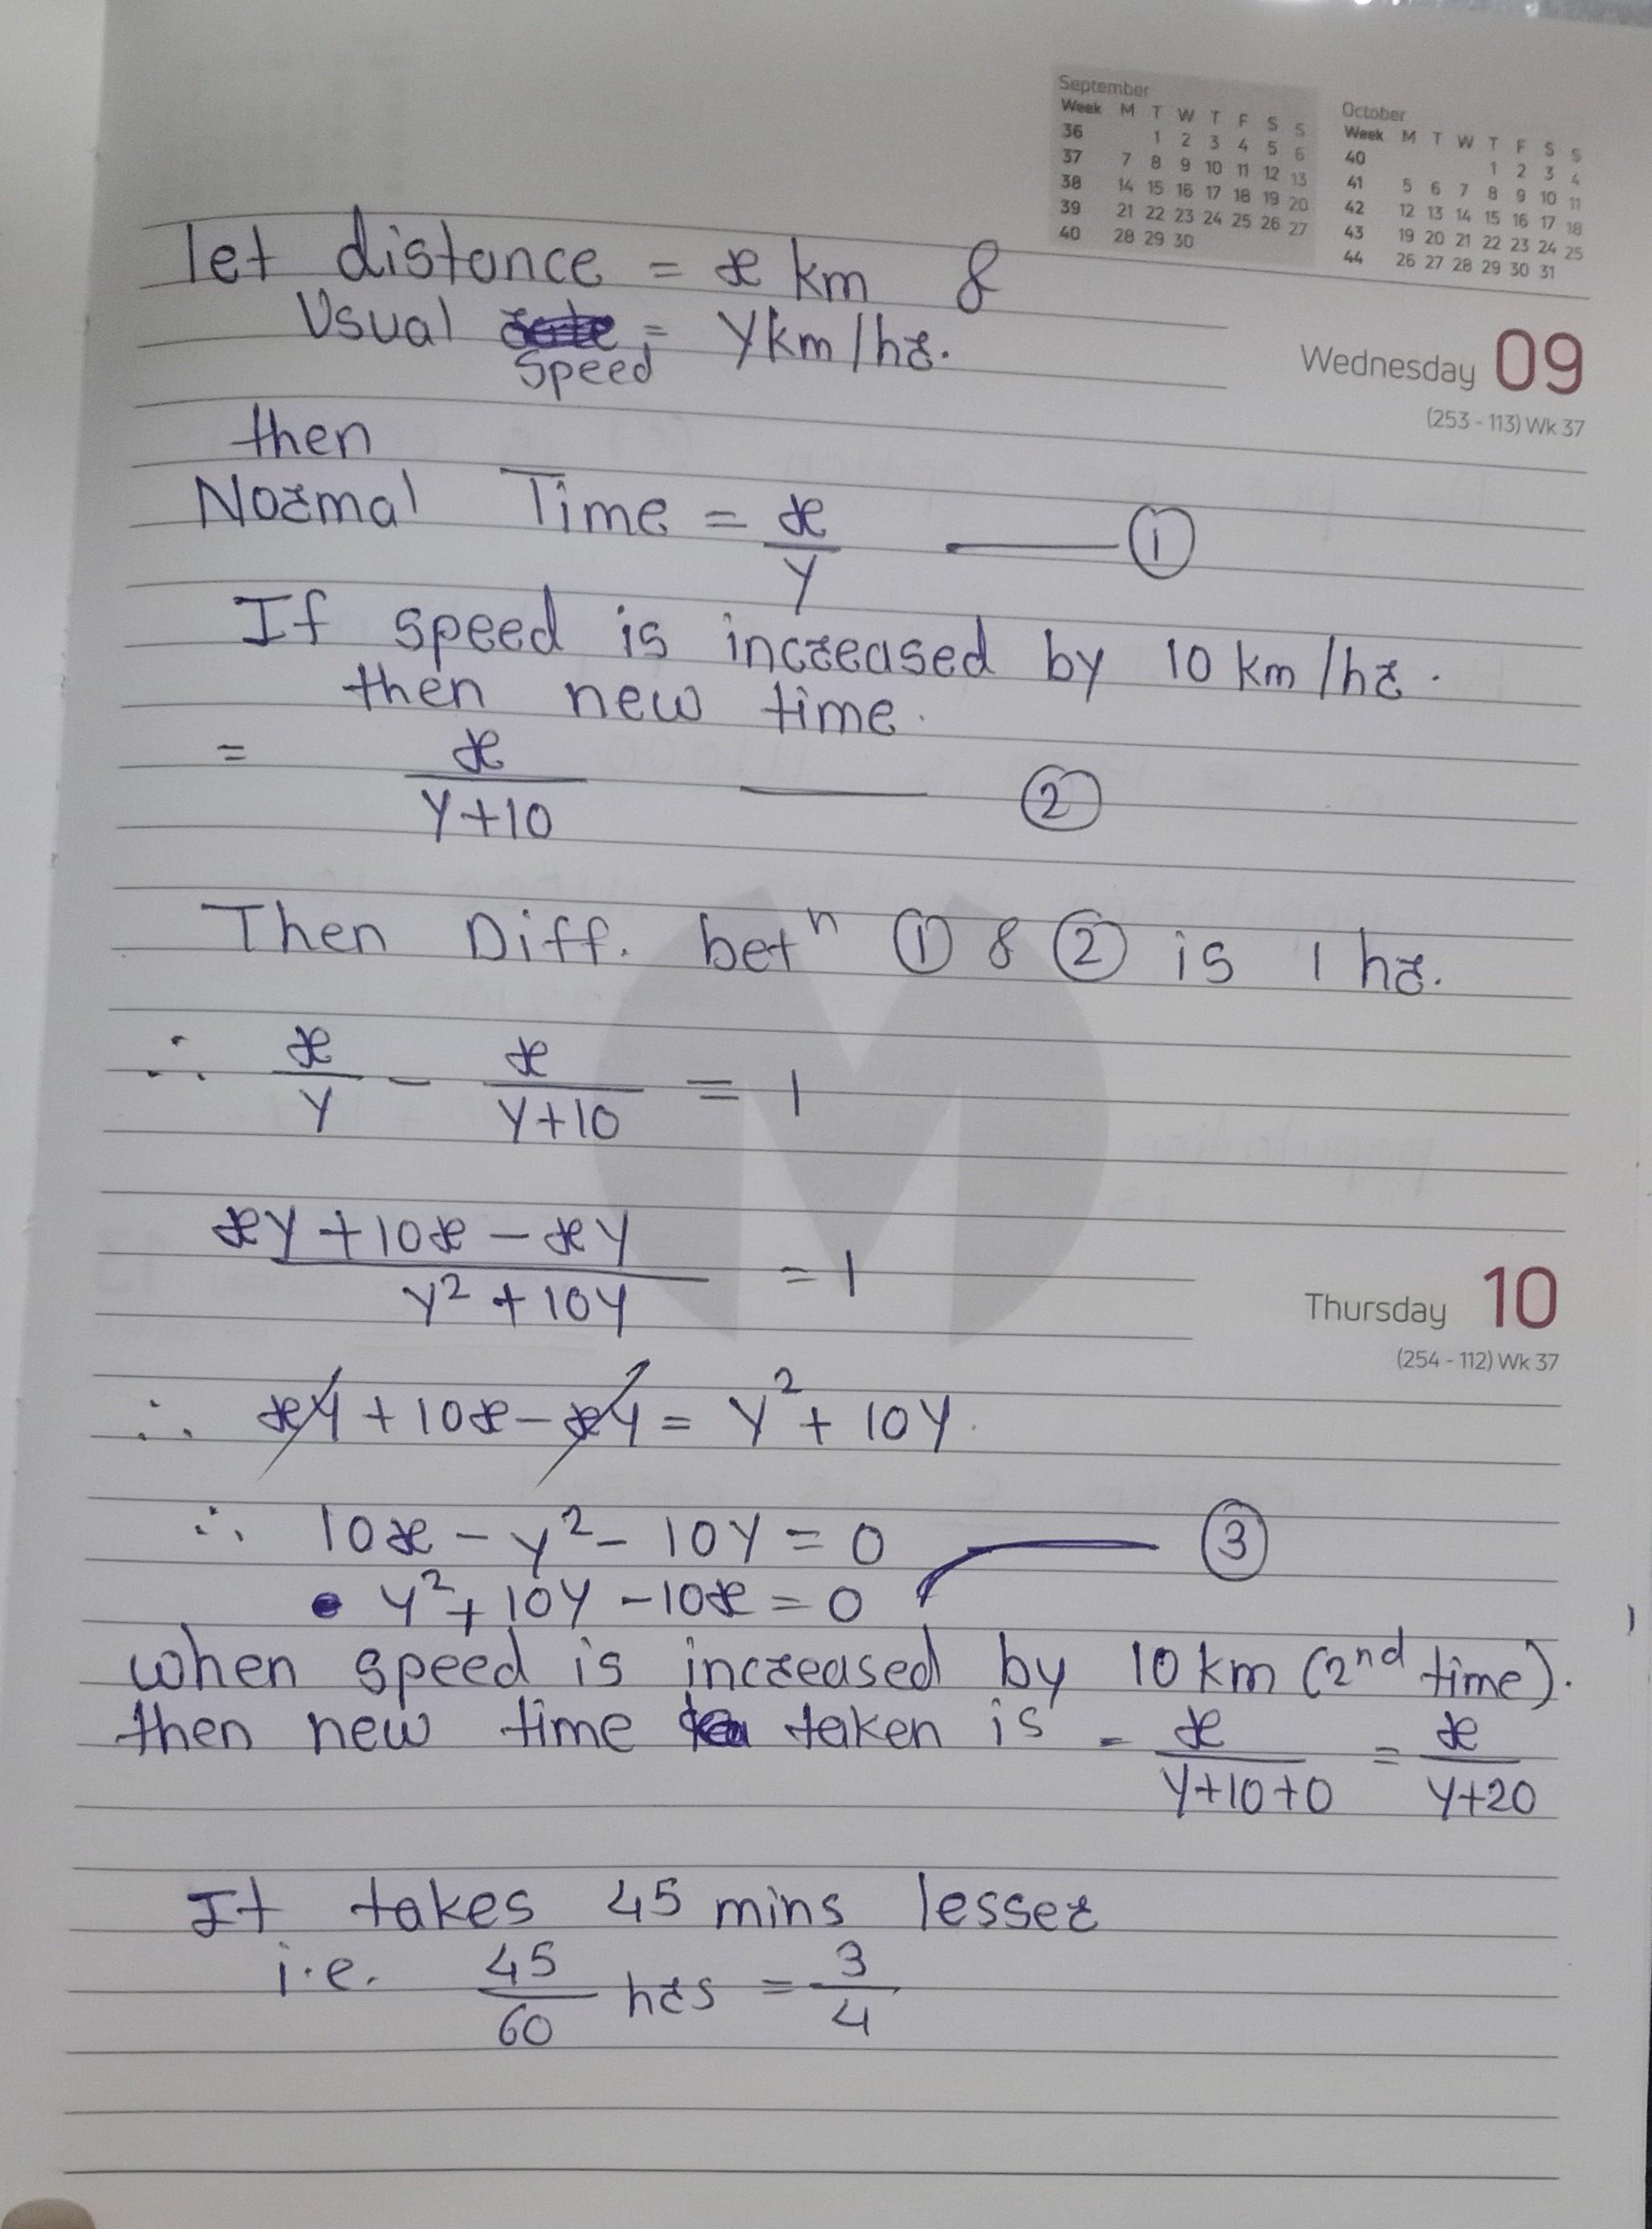 September
Week M T W T F S S
36 1 2 3 4 5 6
37 7 8 9 10 11 12 13
38 14 15 16 17 18 19 20
39 21 22 23 24 25 26 27
40 28 29 30
October
Week M T W T F S S
40 1 2 3 4
41 5 6 7 8 9 10 11
42 12 13 14 15 16 17 18
43 19 20 21 22 23 24 25
44 26 27 28 29 30 31
Wednesday 09
(253 - 113) Wk 37
let distance = x km &
Usual = y km/hr.
Speed
then
Normal Time = x/y ——— ①
If speed is increased by 10 km/hr.
then new time.
= x/(y+10) ——— ②
Then Diff. betⁿ ① & ② is 1 hr.
∴ x/y - x/(y+10) = 1
(xy + 10x - xy)/(y² + 10y) = 1
Thursday 10
(254 - 112) Wk 37
∴ xy + 10x - xy = y² + 10y.
∴ 10x - y² - 10y = 0 ——— ③
y² + 10y - 10x = 0
when speed is increased by 10 km (2nd time).
then new time taken is - x/(y+10+0) = x/(y+20)
It takes 45 mins lesser
i.e. 45/60 hrs = 3/4